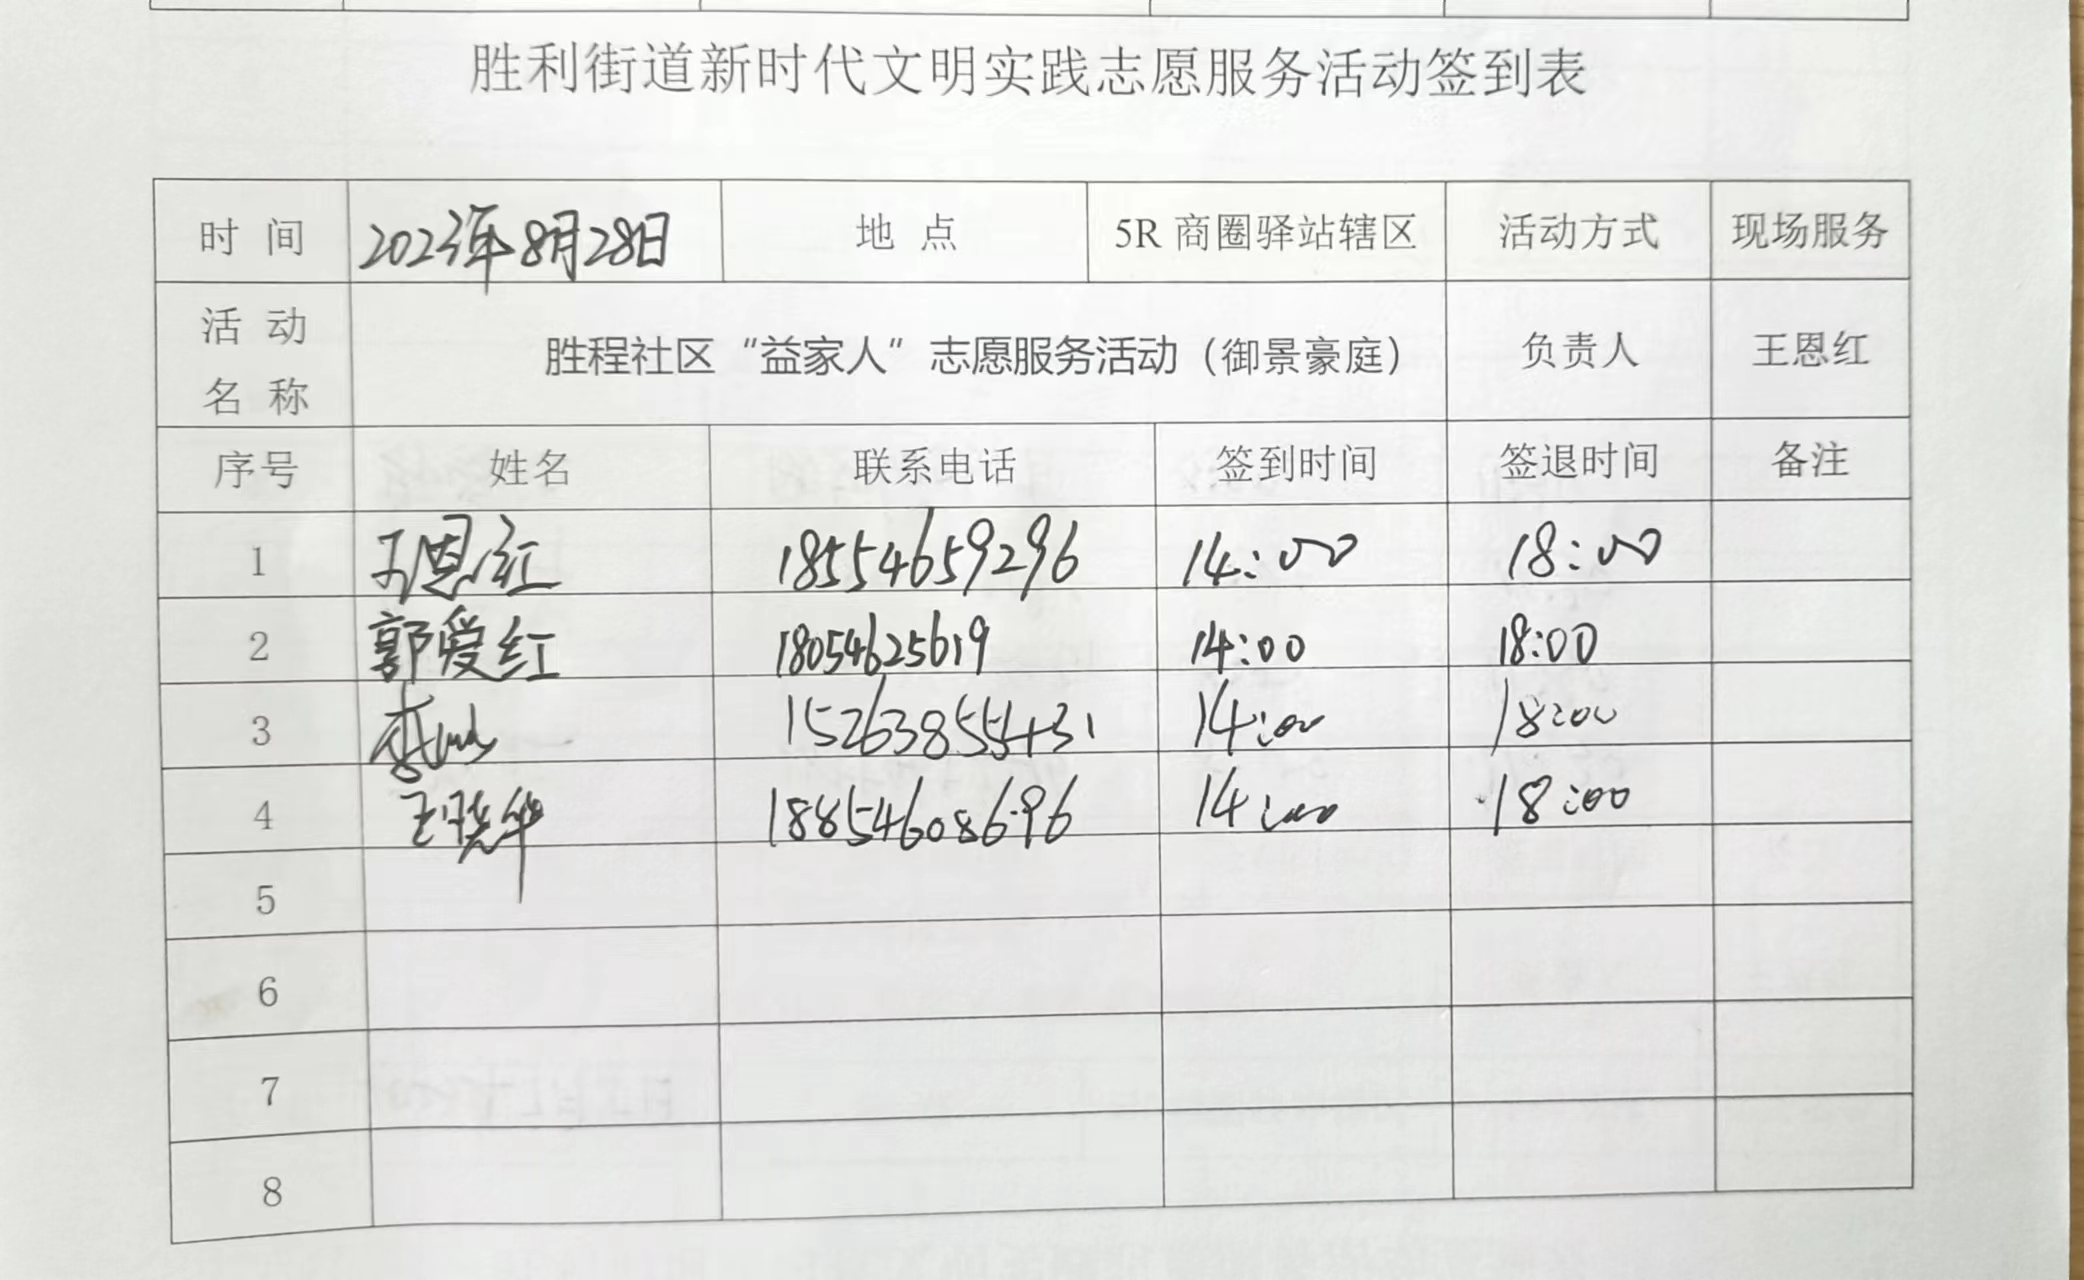 胜利街道新时代文明实践志愿服务活动签到表
时 间 2023年8月28日 地 点 5R 商圈驿站辖区 活动方式 现场服务
活 动 名 称 胜程社区“益家人”志愿服务活动(御景豪庭) 负责人 王恩红
序号 姓名 联系电话 签到时间 签退时间 备注
1 王恩红 18554659296 14:00 18:00
2 郭爱红 18054625619 14:00 18:00
3 15263855431 14:00 18:00
4 王晓华 18854608696 14:00 18:00
5
6
7
8